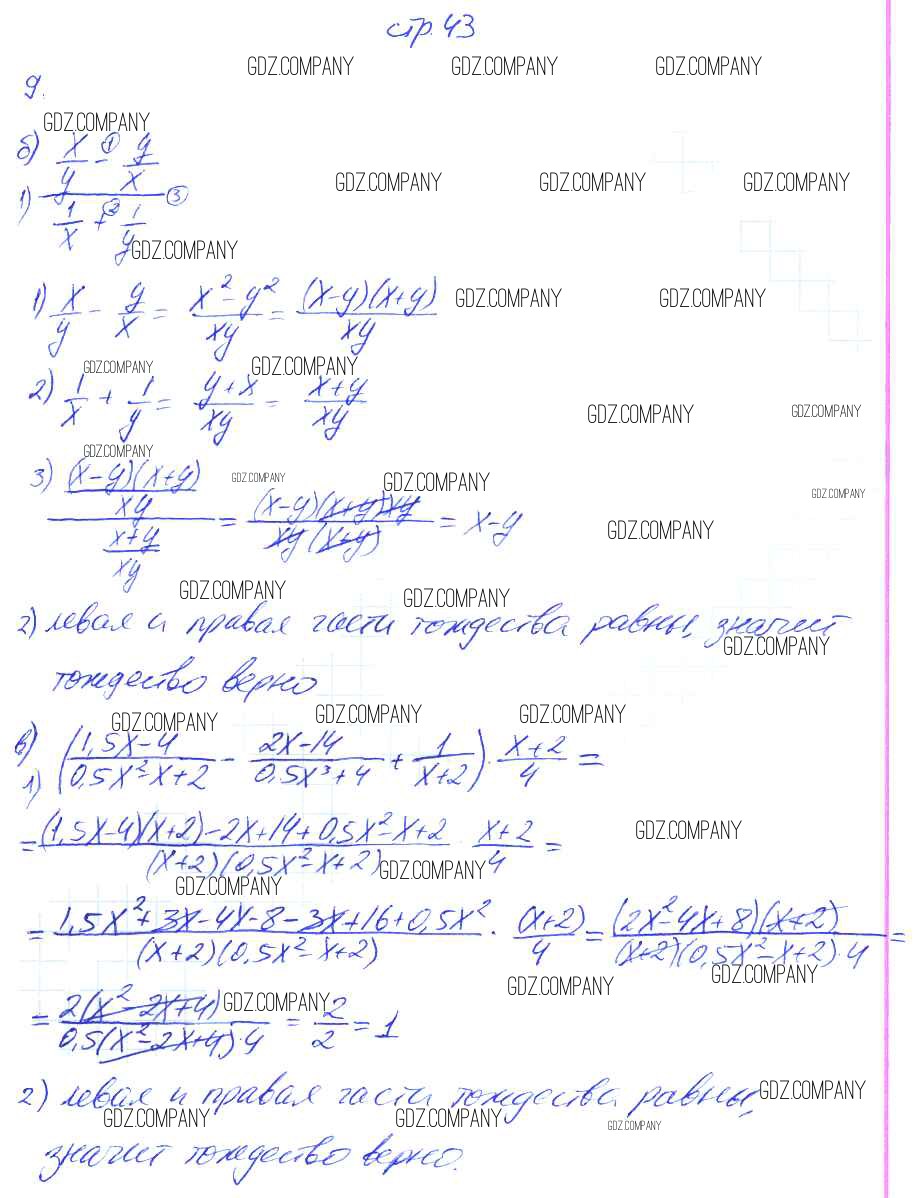 стр. 43
GDZ.COMPANY GDZ.COMPANY GDZ.COMPANY
9.
GDZ.COMPANY
б) x/y - ① y/x
1) ③ GDZ.COMPANY GDZ.COMPANY GDZ.COMPANY
1/x + ② 1/y
GDZ.COMPANY
1) x/y - y/x = (x² - y²)/xy = (x-y)(x+y)/xy GDZ.COMPANY GDZ.COMPANY
GDZ.COMPANY GDZ.COMPANY
2) 1/x + 1/y = (y+x)/xy = (x+y)/xy GDZ.COMPANY GDZ.COMPANY
GDZ.COMPANY
3) ((x-y)(x+y)/xy)/((x+y)/xy) = (x-y)(x+y)xy/xy(x+y) = x-y
GDZ.COMPANY GDZ.COMPANY GDZ.COMPANY
GDZ.COMPANY
GDZ.COMPANY GDZ.COMPANY
2) левая и правая части тождества равны, значит
GDZ.COMPANY
тождество верно
GDZ.COMPANY GDZ.COMPANY GDZ.COMPANY
в)
1) ((1,5x-4)/(0,5x²-x+2) - (2x-14)/(0,5x³+4) + 1/(x+2)) · (x+2)/4 =
= ((1,5x-4)(x+2)-2x+14+0,5x²-x+2)/((x+2)(0,5x²-x+2)) · (x+2)/4 = GDZ.COMPANY
GDZ.COMPANY GDZ.COMPANY
= (1,5x²+3x-4x-8-3x+16+0,5x²)/((x+2)(0,5x²-x+2)) · (x+2)/4 = (2x²-4x+8)(x+2)/((x+2)(0,5x²-x+2)·4) =
GDZ.COMPANY GDZ.COMPANY
= 2(x²-2x+4)/(0,5(x²-2x+4)·4) = 2/2 = 1 GDZ.COMPANY
2) левая и правая части тождества равны, GDZ.COMPANY
GDZ.COMPANY GDZ.COMPANY GDZ.COMPANY
значит тождество верно.